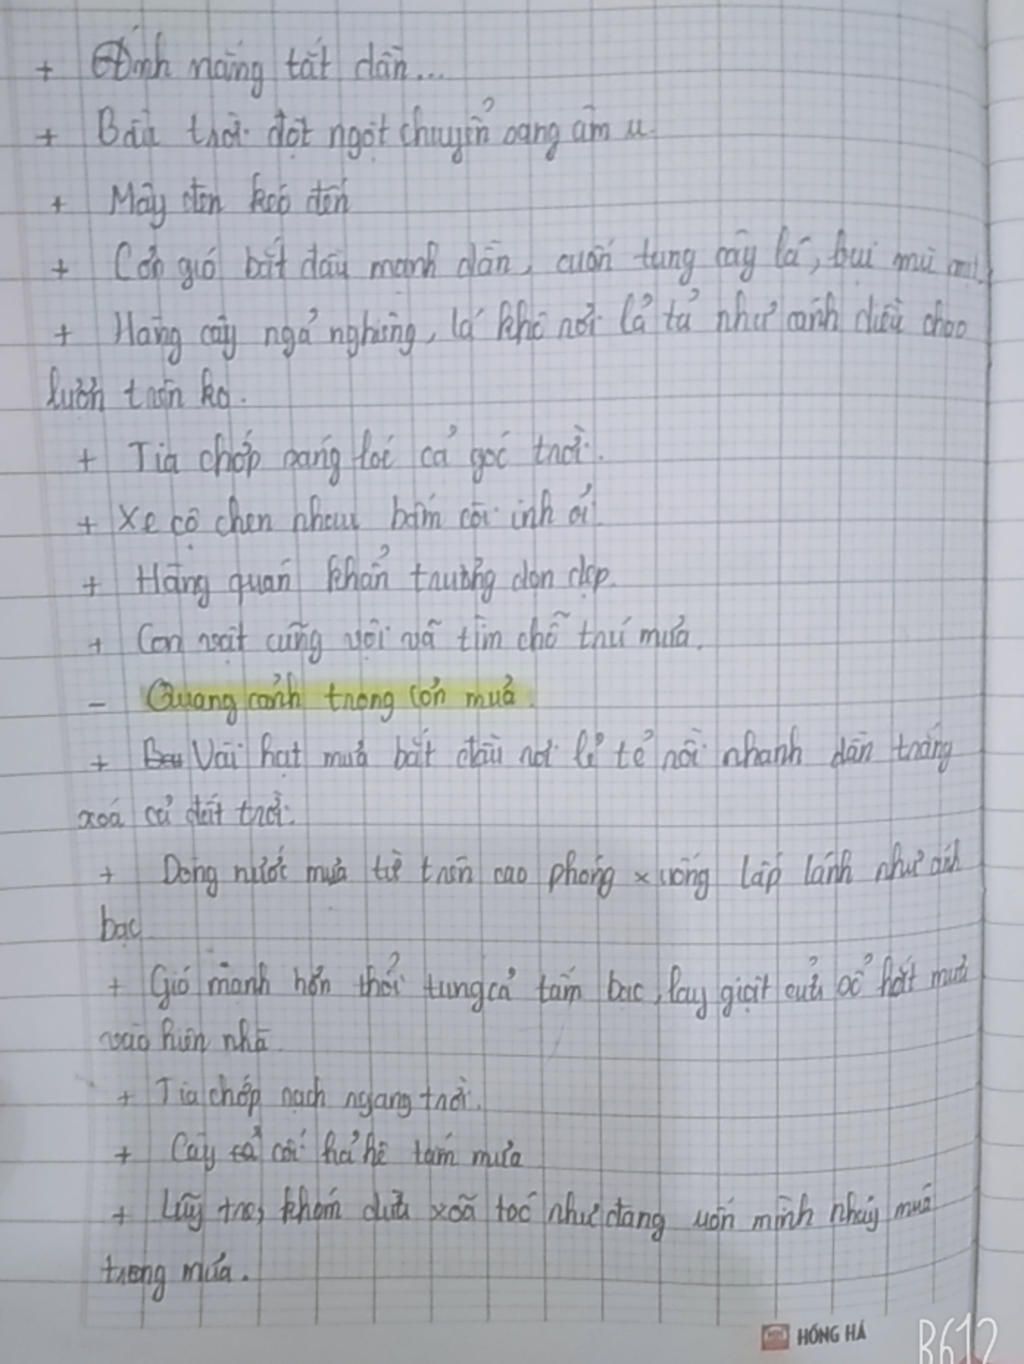 + Ánh nắng tắt dần...
+ Bầu trời đột ngột chuyển sang âm u.
+ Mây đen kéo đến
+ Cơn gió bắt đầu mạnh dần, cuốn tung cây lá, bụi mù
+ Hàng cây ngả nghiêng, lá khô rơi lả tả như cánh diều chao
lượn trên ko.
+ Tia chớp sáng loé cả góc trời.
+ Xe cộ chen nhau bấm còi inh ỏi
+ Hàng quán khẩn trương dọn dẹp.
+ Con vật cũng vội vã tìm chỗ trú mưa.
- Quang cảnh trong cơn mưa.
+ Vài hạt mưa bắt đầu rơi lẻ tẻ rồi nhanh dần trắng
xoá cả đất trời.
+ Dòng nước mưa từ trên cao phóng xuống lấp lánh như ánh
bạc
+ Gió mạnh hơn thổi tung cả tấm bạc, lay giật cửa sổ hắt mưa
vào hiên nhà.
+ Tia chớp rạch ngang trời.
+ Cây cối hả hê tắm mưa
+ Luỹ tre, khóm dừa xoã tóc như đang uốn mình nhảy múa
trong mưa.
HỒNG HÀ
B612